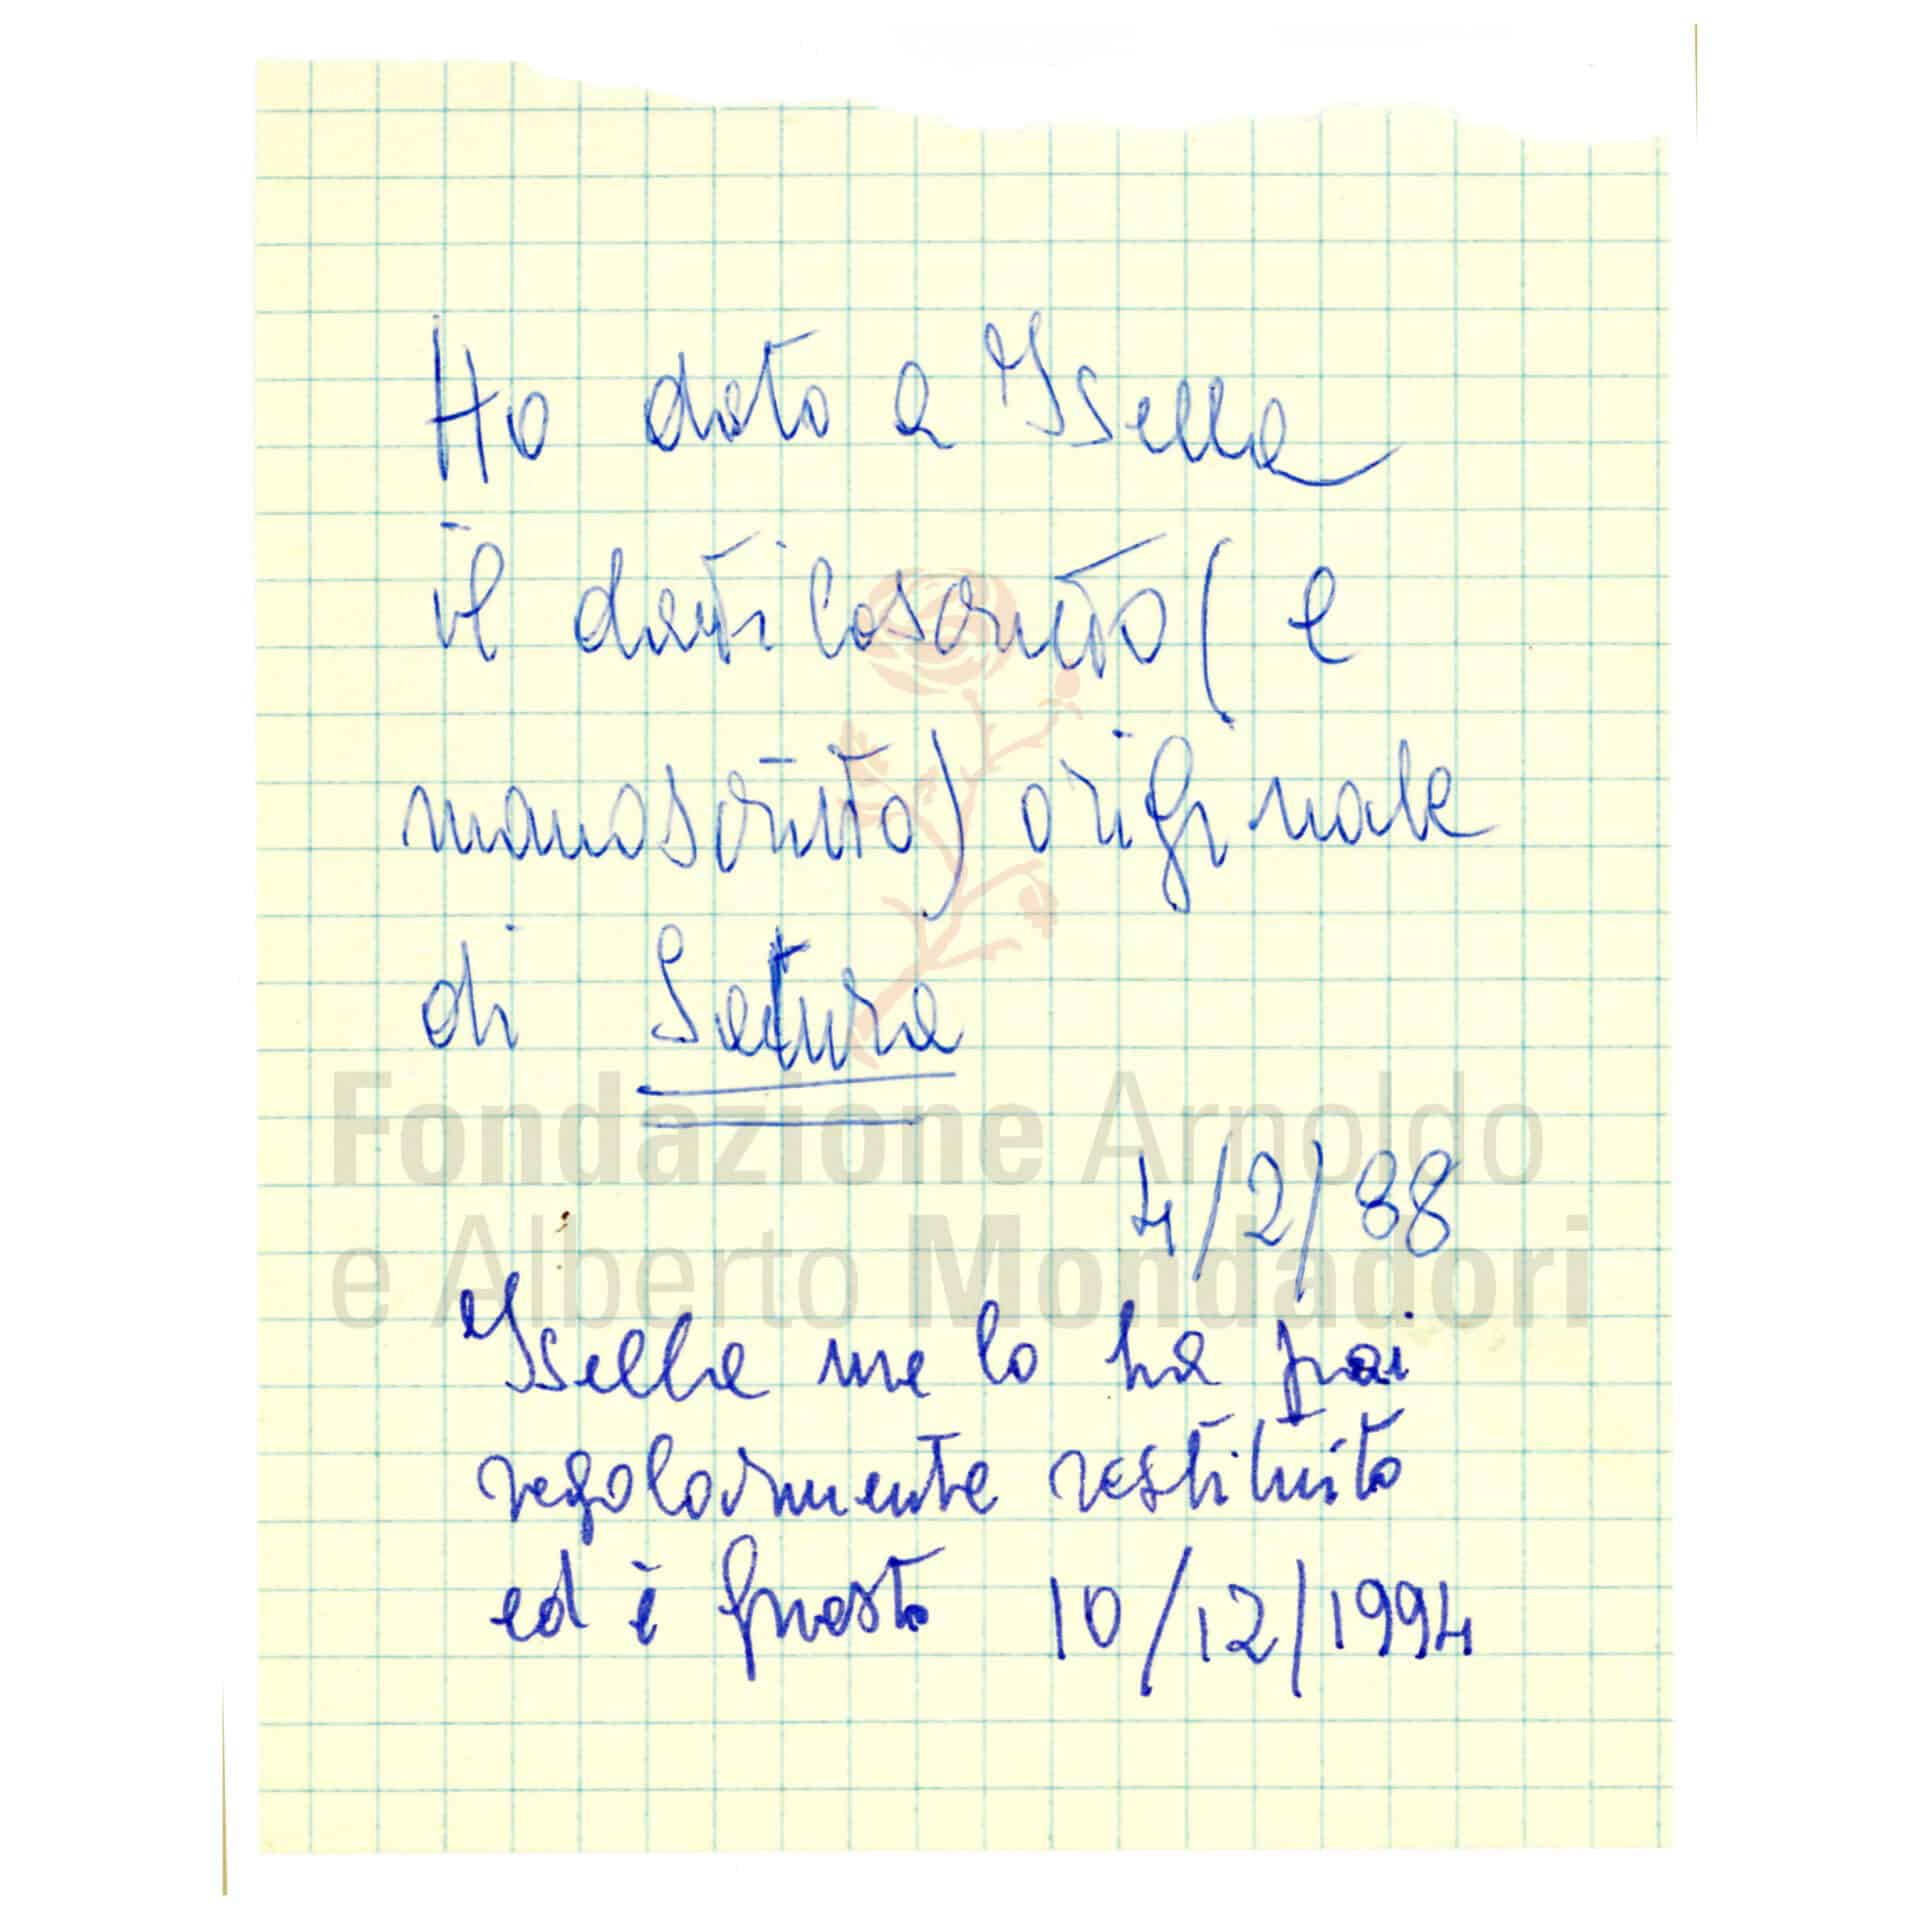 Ho dato a Isella
il dattiloscritto (e
manoscritto) originale
di Satura
4/2/88
Isella me lo ha poi
regolarmente restituito
ed è questo 10/12/1994
Fondazione Arnoldo
e Alberto Mondadori